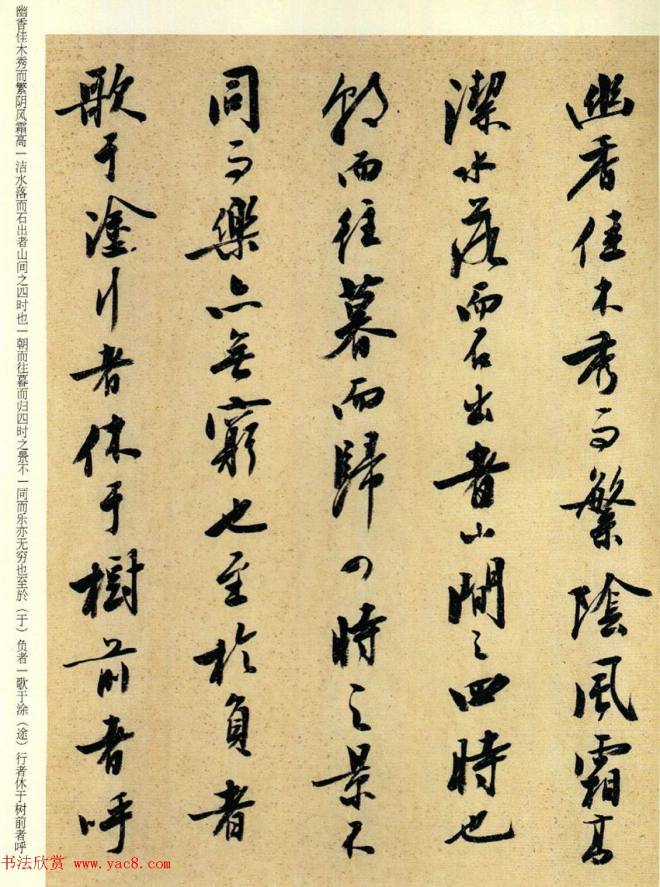 幽香佳木秀而繁陰風霜高
潔水落而石出者山間之四時也
朝而往暮而歸四時之景不
同而樂亦無窮也至於負者
歌于塗行者休于樹前者呼
幽香佳木秀而繁阴风霜高一洁水落而石出者山间之四时也一朝而往暮而归四时之景不一同而乐亦无穷也至於（于）负者一歌于涂（途）行者休于树前者呼
书法欣赏 www.yac8.com